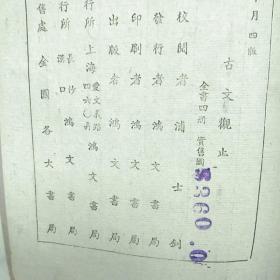 月四版
古文觀止
全書四冊 實售國
$360.0
校閱者 浦士釗
發行者 鴻文書局
印刷者 鴻文書局
出版者 鴻文書局
行所 上海 愛文義路 鴻文書局
行所 長沙 漢口 鴻文書局
售處 全國各大書局